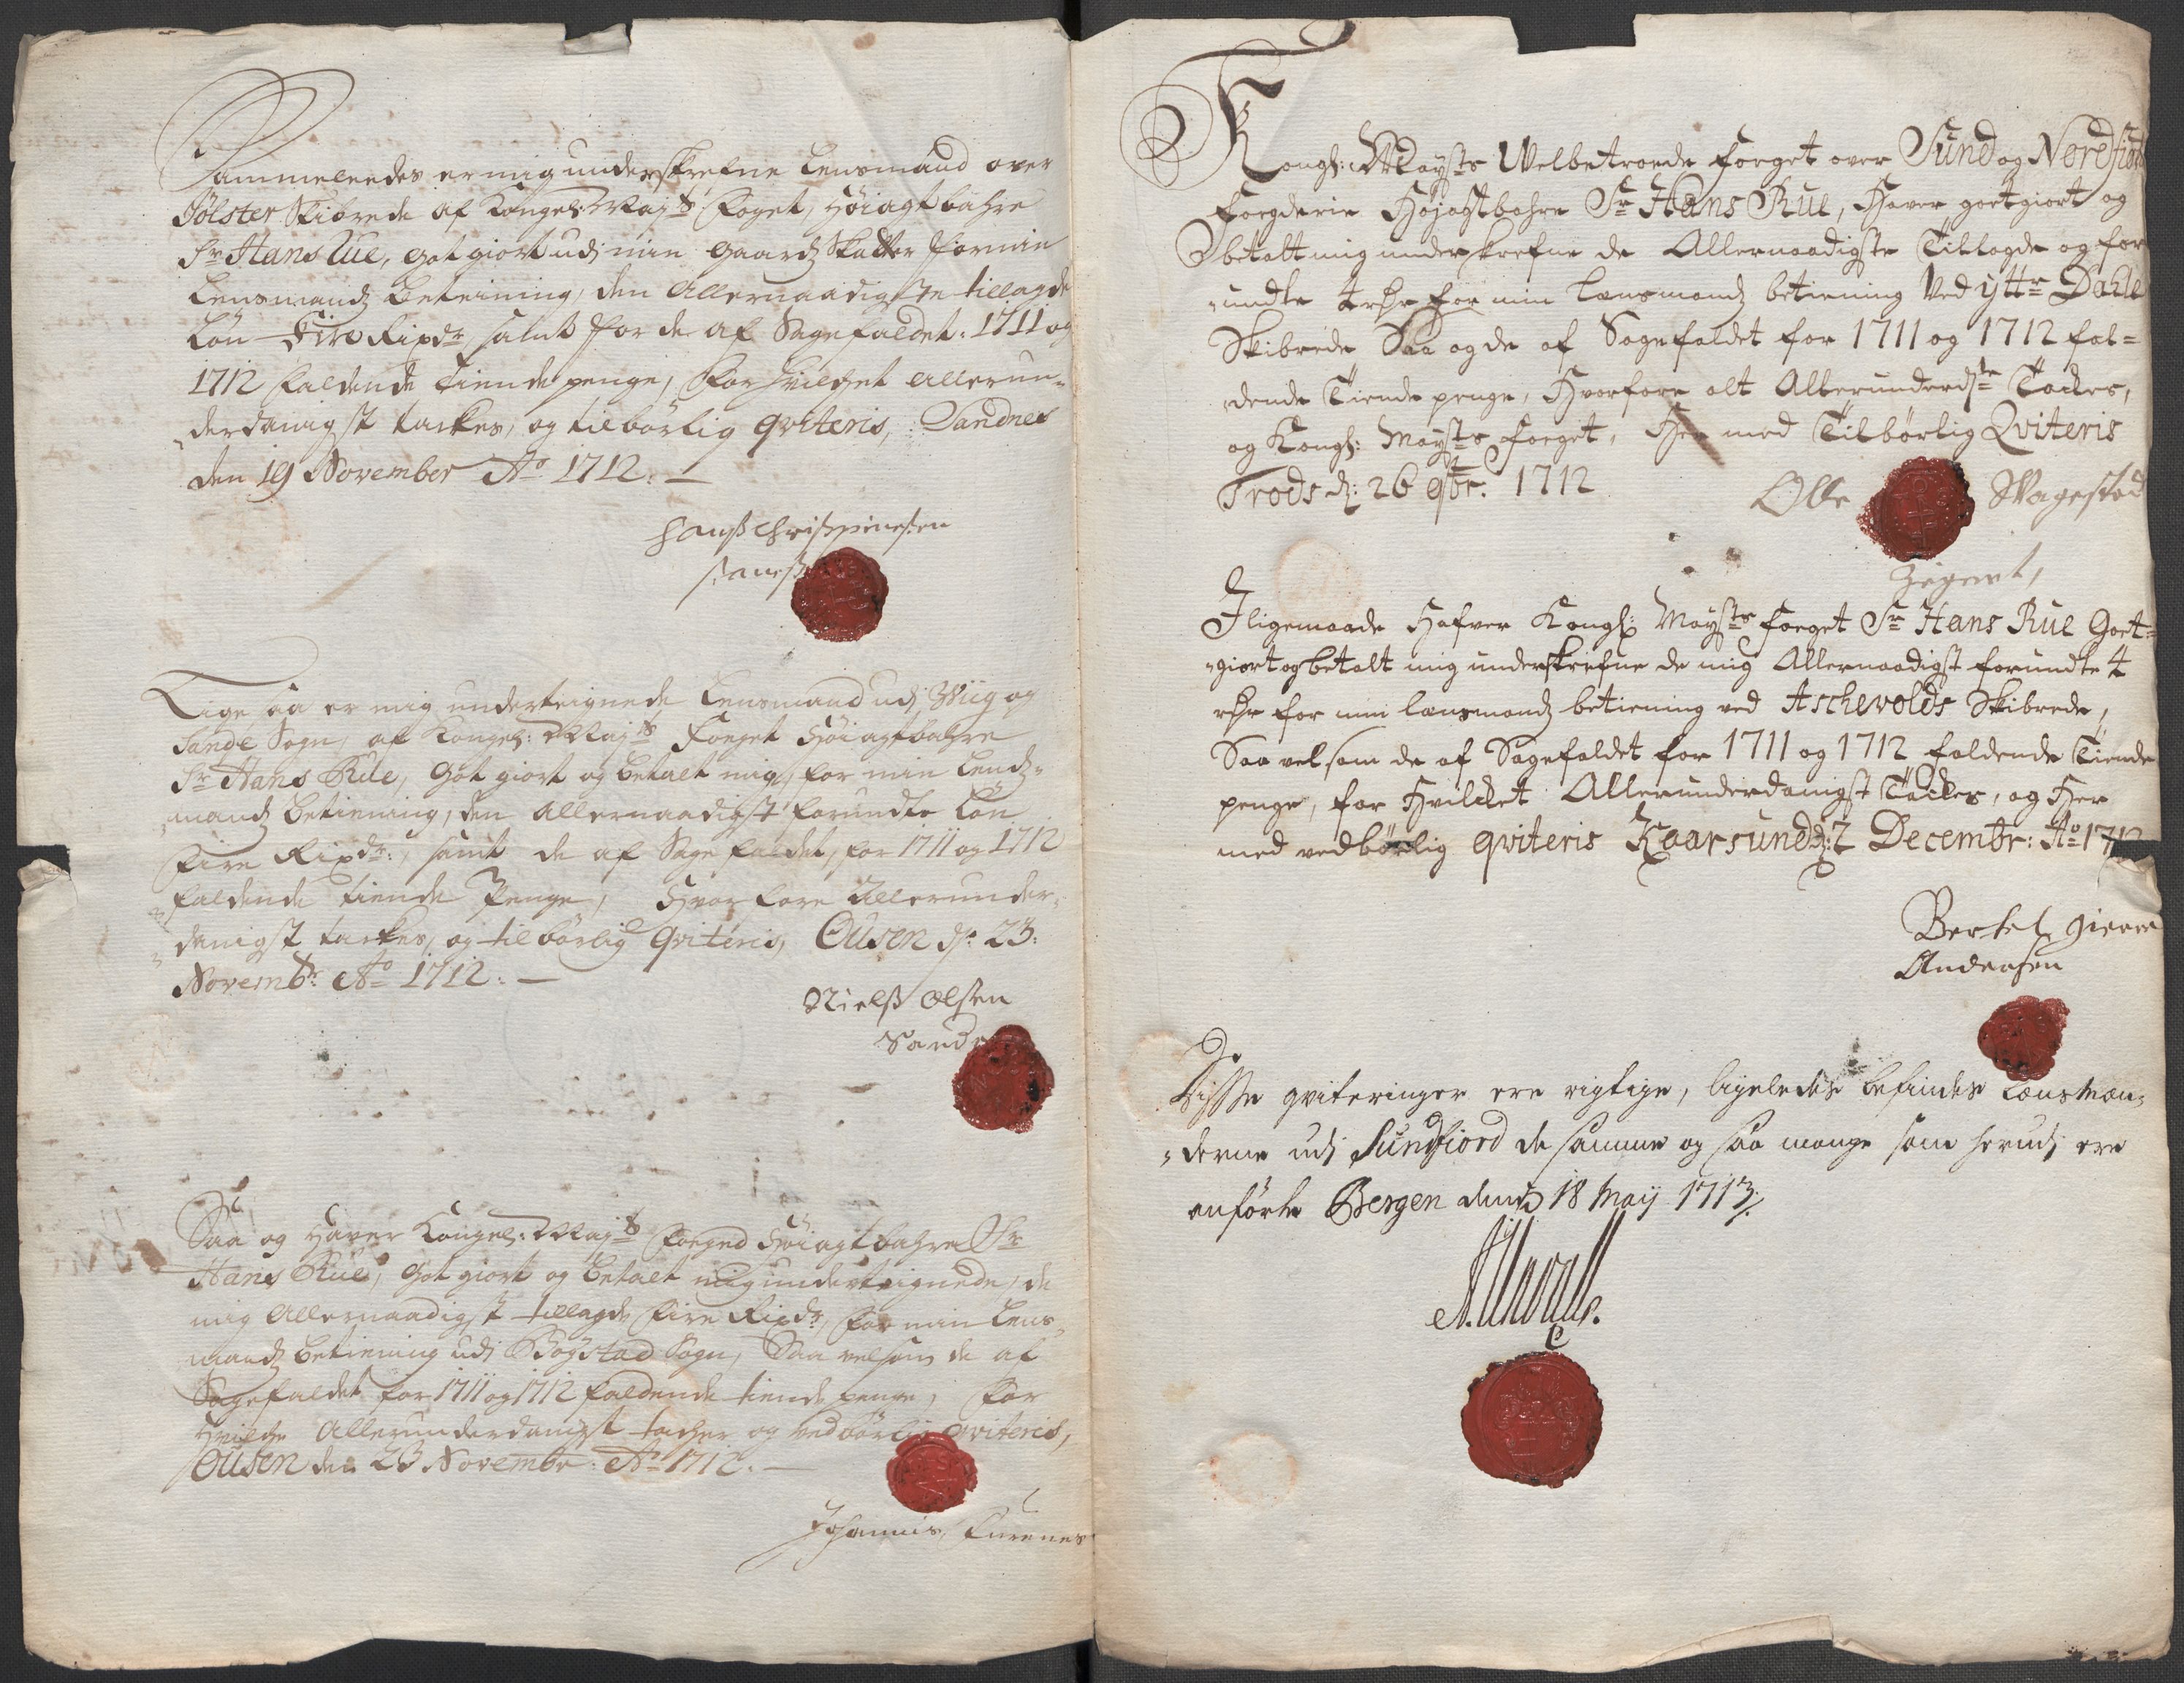 Sammeleedes er mig underskrefne Lensmand over
Jølster Skibrede af Kongel: May:ts Foget, Høiagtbahre
Sr Hans Rue, godtgiort udj min Gaardz Skatter for min
Lensmandz Betiening, den Allernaadigste tillagde
Løn Fire Rixdr, samt for de af Sagefaldet: 1711 og
1712 faldende tiende penge, for hvilchet Allerun-
derdanigst tackes, og tilbørlig qviteris, Sandnes
den 19 November Ao 1712.
Hanss Christensen

Lige saa er mig underteignede Lensmand udj Wiig og
Sande Sogn, af Kongel: May:ts Foeget Høiagtbahre
Sr Hans Rue, Godtgiort og betalt mig, for min Lendz-
mandz Betiening, den Allernaadigst forundte Løn
Fire Rixdr:, samt de af Sagefaldet, for 1711 og 1712
faldende tiende Penge, Hvorfore Allerunder-
danigst tackes, og tilbørlig Qviteris, Ousen d: 23:
Novembr: Ao 1712.
Nielss Olsen
Sande

Saa og Haver Kongel: May:ts Foeged Høiagtbahre Sr
Hans Rue, Godtgiort og betalt mig underteignede, de
mig Allernaadigst tillagde Fire Rixdr, for min Lens-
mandz Betiening udj Bogstad Sogn, Saavelsom de af
Sagefaldet for 1711 og 1712 faldende tiende penge, for
Hvilche Allerunderdanigst tackes og vedbørlig qviteris,
Ousen den 23 Novembr: Ao 1712.
Johannis Furenes

Kongl: Mayts Welbetroede Foeget over Sund og Nordfiord
Foegderie Høyagtbahre Sr Hans Rue, Haver goetgiort og
betalt mig underskrefne de Allernaadigste Tillagde og for
undte 4 rdr for min Lænsmandz betiening Ved ytter Dahle
Skibrede Saa og de af Sagefaldet for 1711 og 1712 fal=
dende Tiende penge, Hvorfore alt Allerunderdste Tackes,
og Kongl: Mayts Foeget, Her med Tilbørlig Qviteris
Trods d: 26 9br: 1712
Olle Wagestad

Iligemaade Hafver Kongl: Mayts Foeget Sr Hans Rue Goet=
giort og betalt mig underskrefne de mig Allernaadigst forundte 4
rdr for min lænsmandz betiening ved Aschevolds Skibrede,
Saa vel som de af Sagefaldet for 1711 og 1712 faldende Tiende
penge, for Hvilchet Allerunderdanigst Tackes, og Her
med vedbørlig qviteris Kaarsund d: 2 Decembr: Ao 1712
Bertel
Andersen

Disse qviteringer ere rigtige, ligeledes befindes Lænsmæn-
derne udj Sundfiord de samme og saa mange som herudj ere
anførte Bergen dend 18 Maij 1713